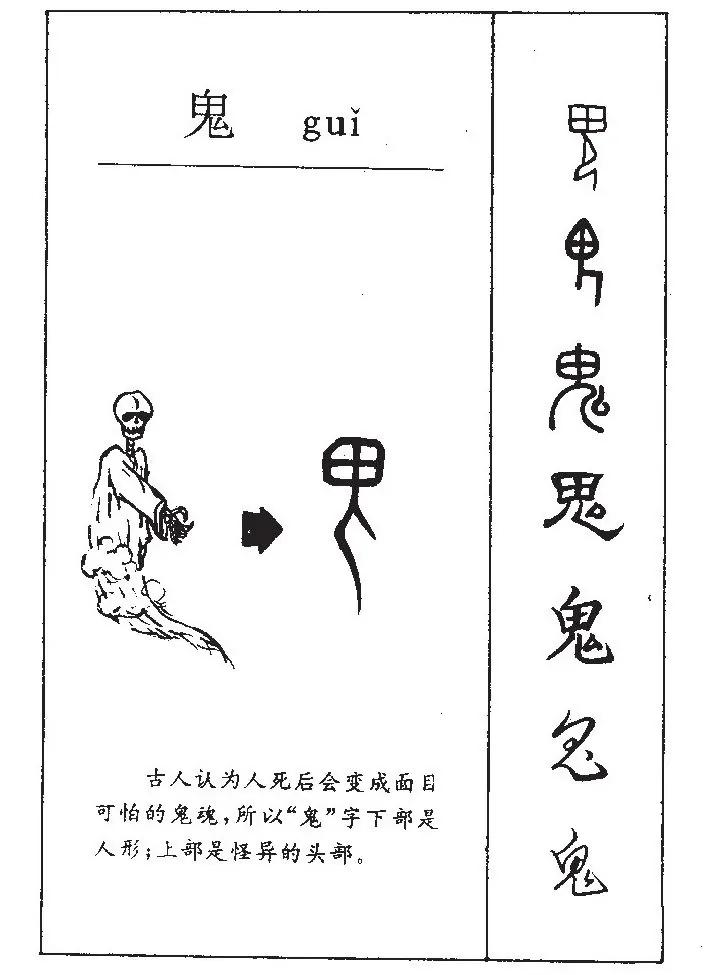 鬼 guǐ
古人认为人死后会变成面目
可怕的鬼魂，所以“鬼”字下部是
人形；上部是怪异的头部。
鬼
鬼
鬼
鬼
鬼
鬼
鬼
鬼